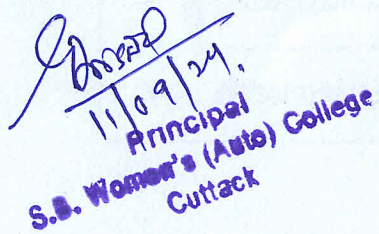 11/09/24.
Principal
S.B. Women's (Auto) College
Cuttack